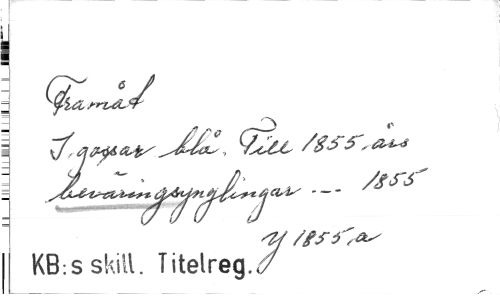 Framåt
I gossar blå. Till 1855 års
beväringsynglingar --- 1855
Y 1855,a
KB:s skill. Titelreg.